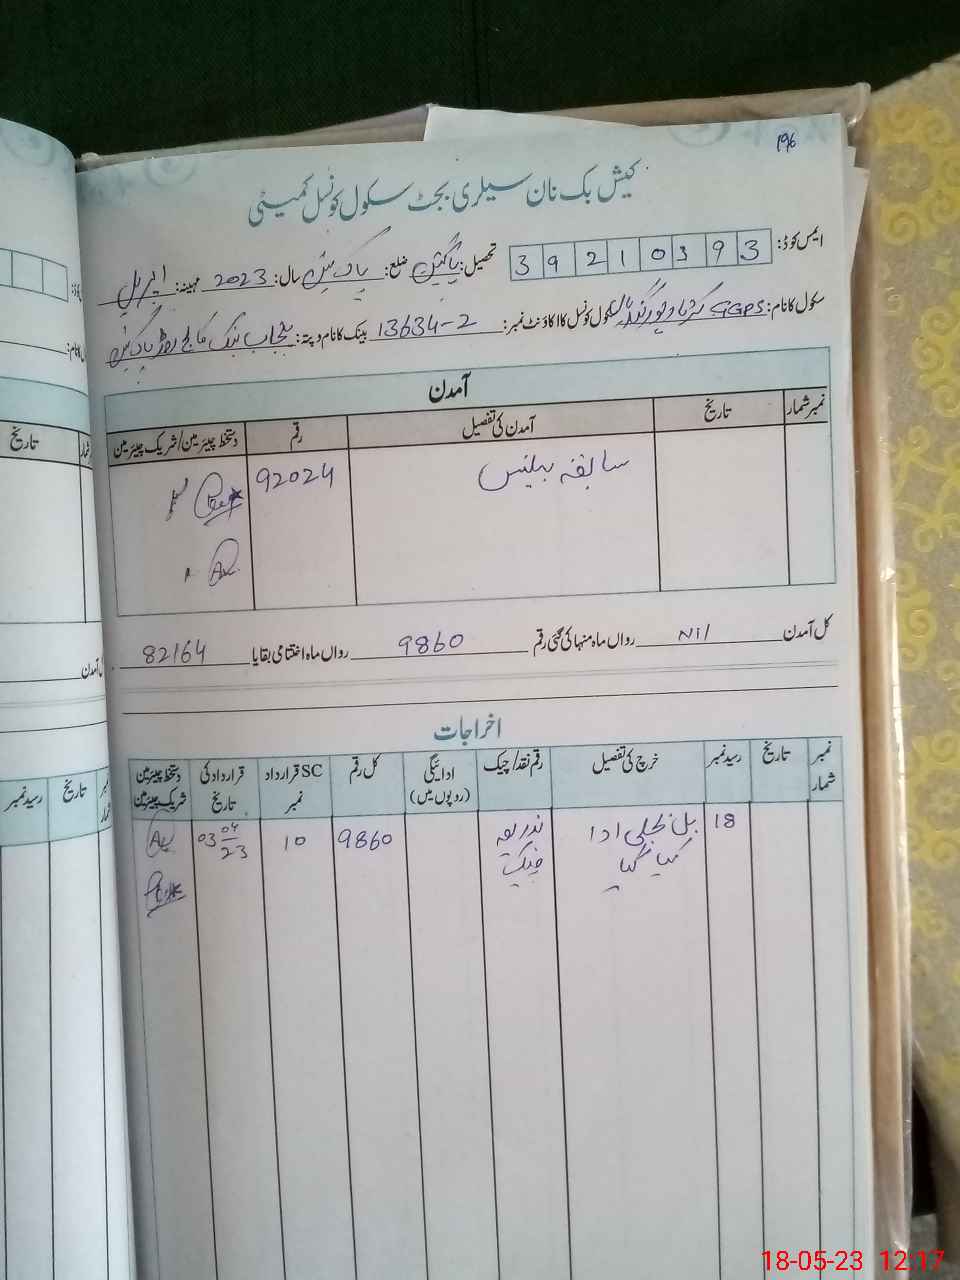 196
کیش بک نان سیلری بجٹ سکول کونسل کمیٹی
ایمس کوڈ: 3 9 2 1 0 3 9 3 تحصیل: پاکپتن ضلع: پاکپتن سال: 2023 مہینہ: اپریل
سکول کا نام: GGPS سکول کونسل کا اکاؤنٹ نمبر: 13634-2 بینک کا نام و پتہ: پنجاب بنک کالج روڈ پاکپتن
آمدن
نمبر شمار تاریخ آمدن کی تفصیل رقم دستخط چیئرمین/شریک چیئرمین
سابقہ بیلنس 92024
کل آمدن Nil رواں ماہ منہا کی گئی رقم 9860 رواں ماہ اختتامی بقایا 82164
اخراجات
نمبر شمار تاریخ رسید نمبر خرچ کی تفصیل رقم نقد/چیک ادائیگی (روپوں میں) کل رقم SC قرارداد نمبر قرارداد کی تاریخ دستخط چیئرمین شریک چیئرمین
18 بل بجلی ادا کیا گیا بذریعہ چیک 9860 10 03 04 23
کل آمدن
تاریخ
رسید نمبر تاریخ نمبر شمار
18-05-23 12:17